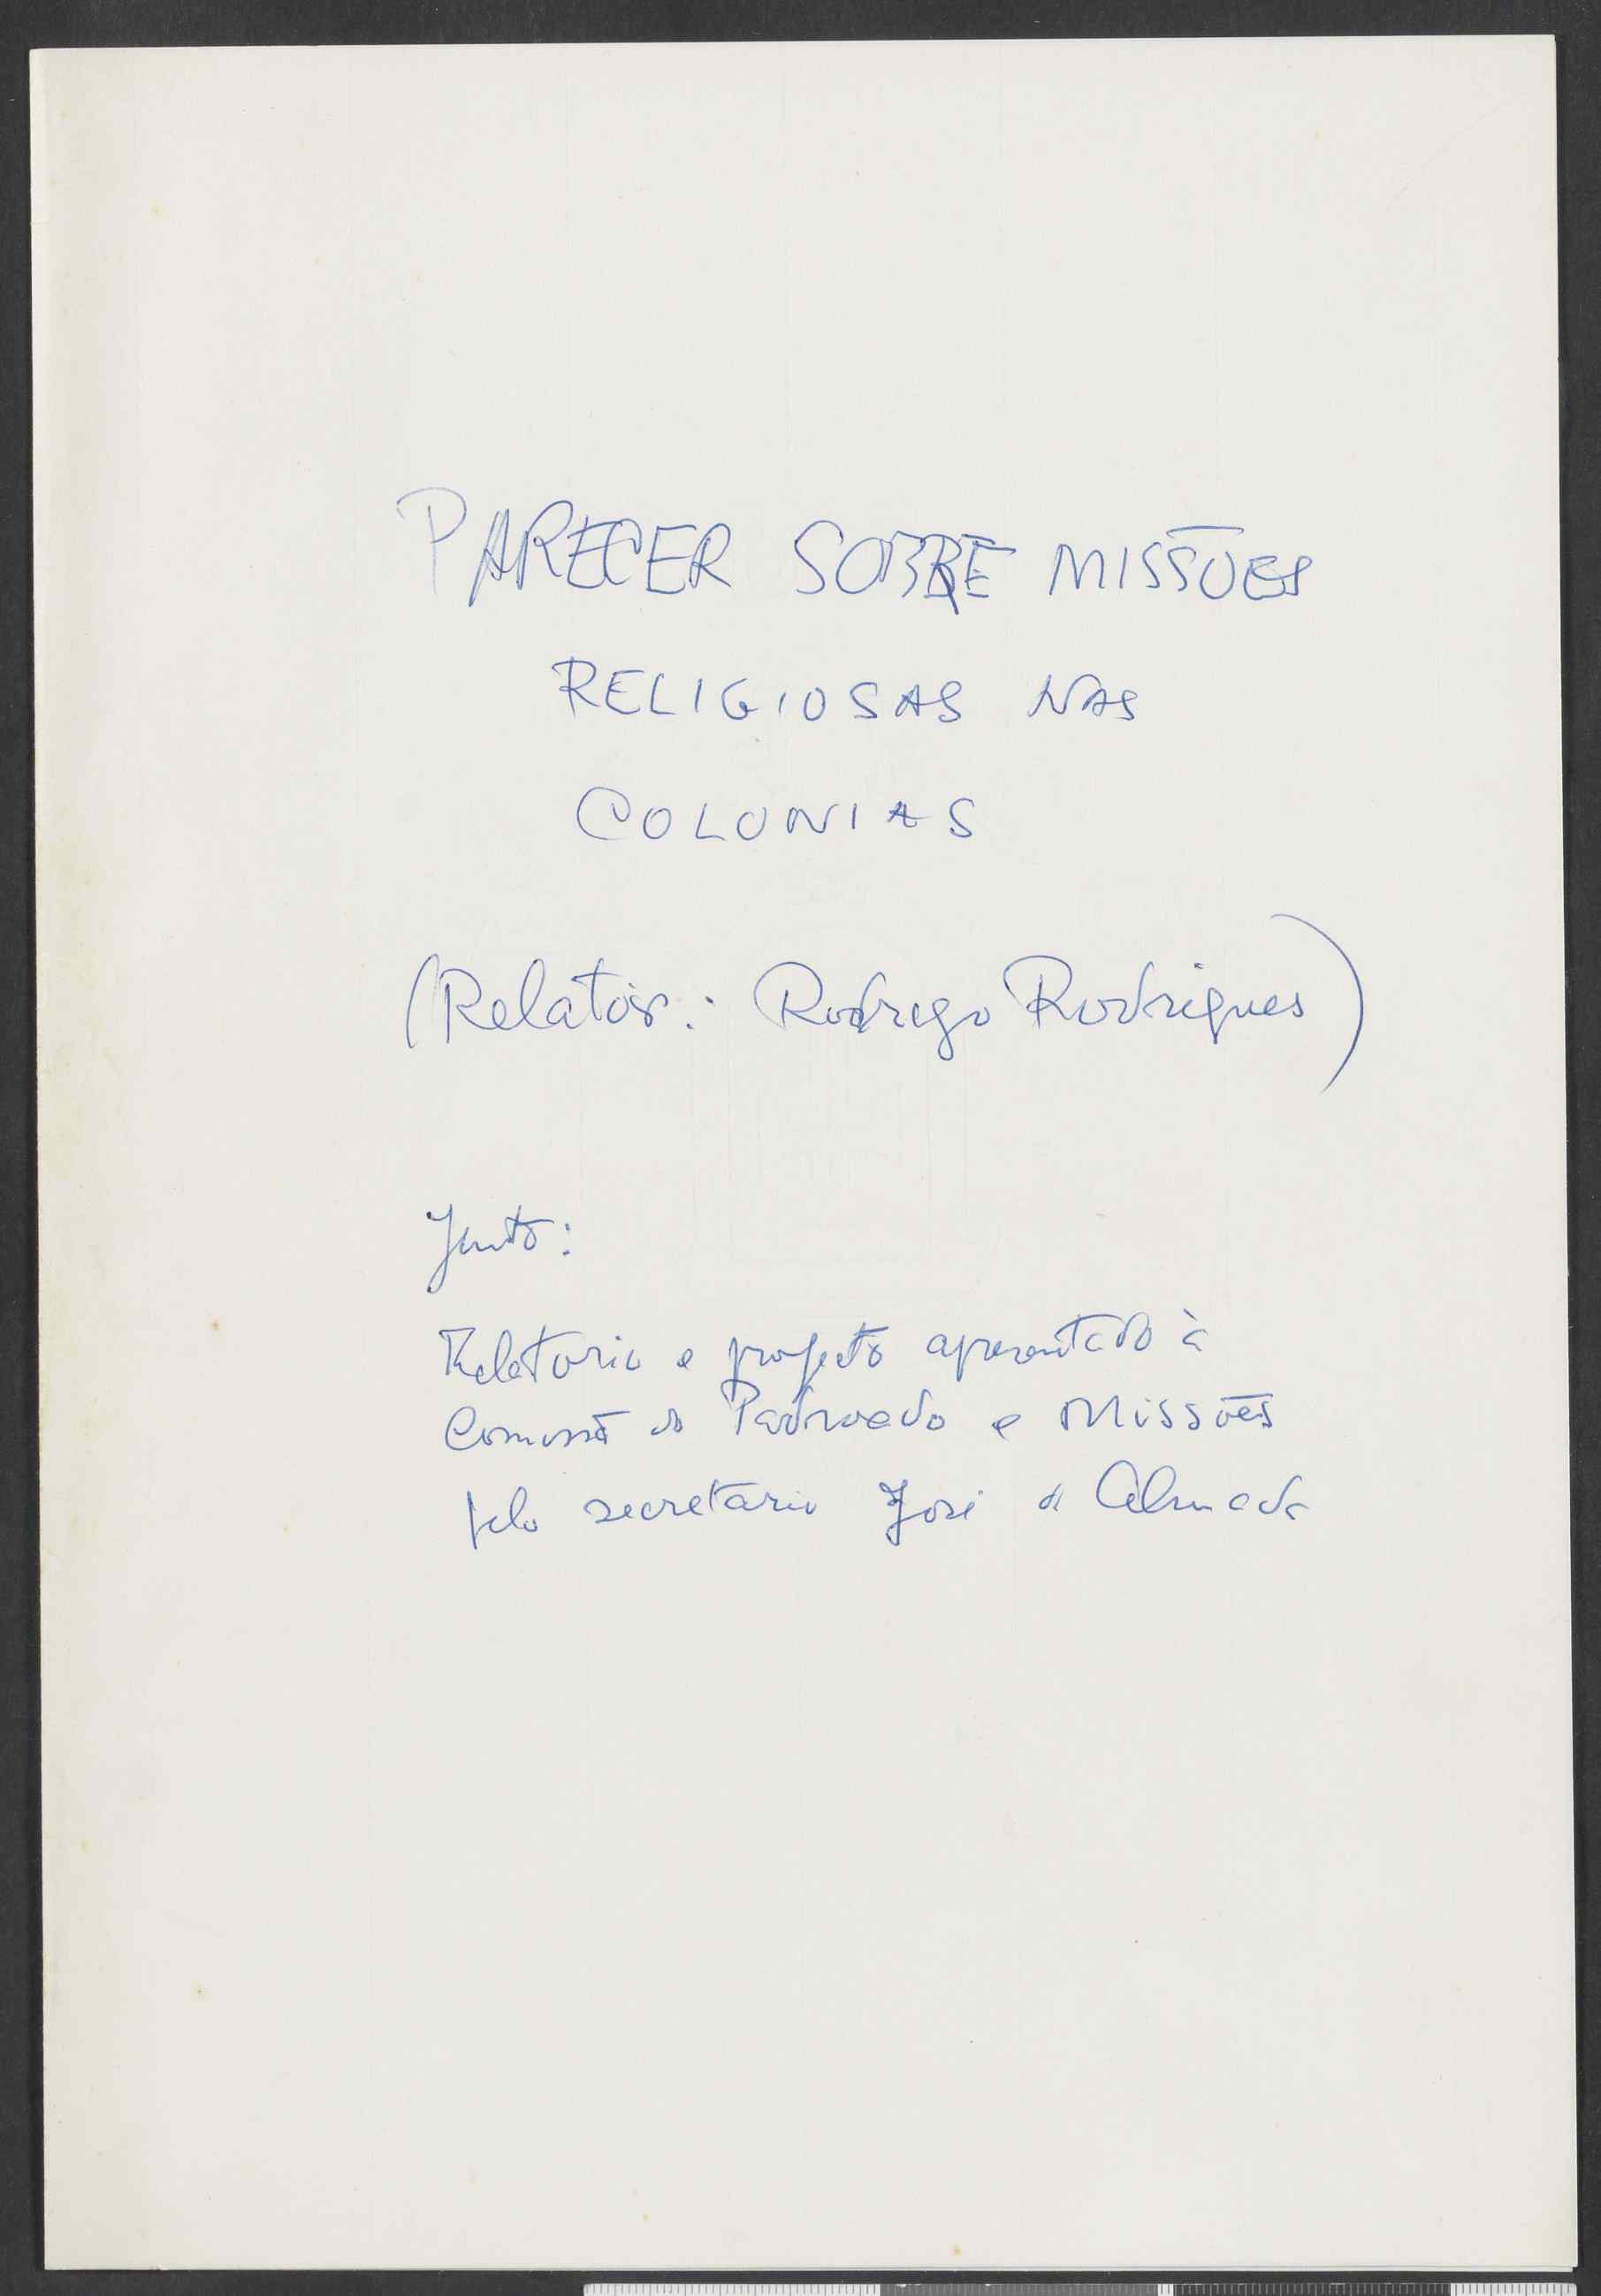 PARECER SOBRE MISSÕES
RELIGIOSAS NAS
COLONIAS
(Relator: Rodrigo Rodrigues)
Junto:
Relatorio e projecto apresentado à
Comissã do Padroado e Missões
pelo secretario José d'Almada